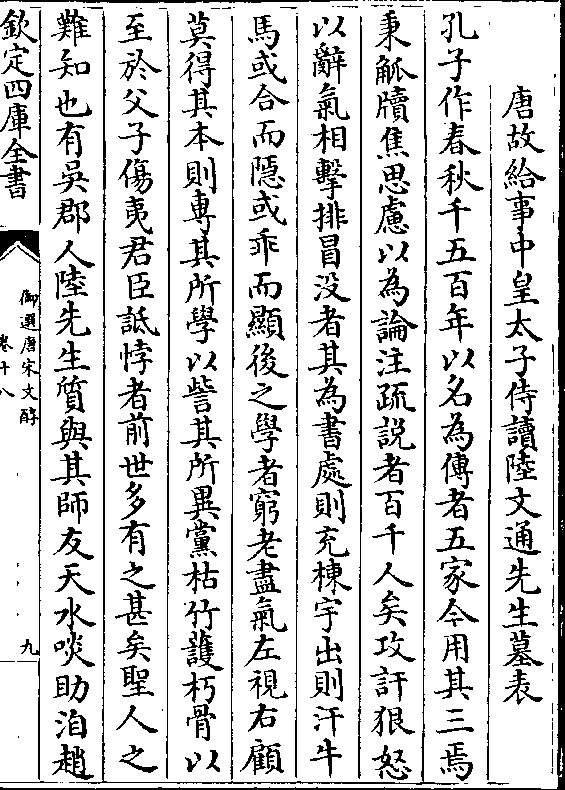 唐故給事中皇太子侍讀陸文通先生墓表
孔子作春秋千五百年以名為傳者五家今用其三焉
秉觚牘焦思慮以為論注疏説者百千人矣攻訐狠怒
以辭氣相擊排冒没者其為書處則充棟宇出則汗牛
馬或合而隱或乖而顯後之學者窮老盡氣左視右顧
莫得其本則專其所學以訾其所異黨枯竹護朽骨以
至於父子傷夷君臣詆悖者前世多有之甚矣聖人之
難知也有吳郡人陸先生質與其師友天水啖助洎趙
欽定四庫全書
御選唐宋文醇
卷十八
九